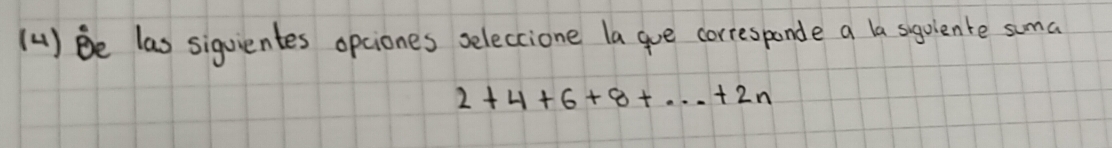 (4) De las siguientes opciones seleccione la que corresponde a la siguiente suma
2 + 4 + 6 + 8 + ... + 2n